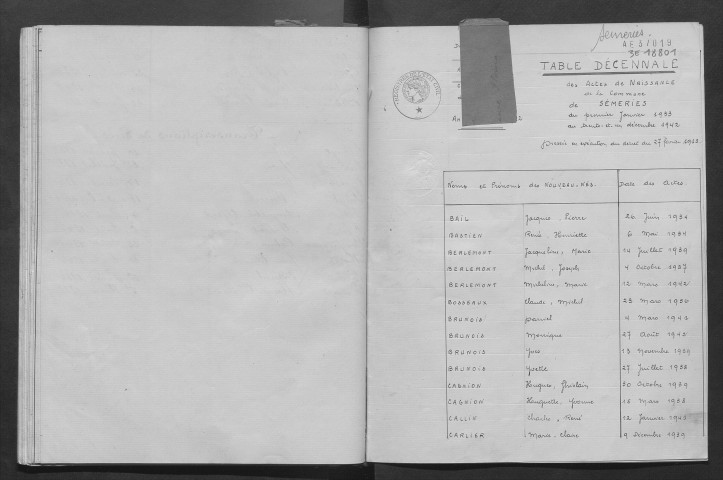 Semeries.
3E 18801
TABLE DÉCENNALE
des Actes de Naissance
de la Commune
de SÉMERIES
du premier Janvier 1933
au trente et un décembre 1942
Dressée en exécution du décret du
Noms et Prénoms des NOUVEAU-NÉS. Date des Actes.
BAIL Jacques, Pierre 26 Juin 1934
BASTIEN René, Henriette 6 Mai
BERLEMONT Jacqueline, Marie 14 Juillet 1939
BERLEMONT Michel, Joseph 4 Octobre 1937
BERLEMONT Micheline, Marie 12 Mars 1942
BOSSEAUX Claude, Michel 23 Mars 1936
BRUNOIS 4 Mars
BRUNOIS Monique 27 Août
BRUNOIS Yves 13 Novembre 1939
BRUNOIS Yvette 27 Juillet 1938
CAGNION Hugues, Ghislain 30 Octobre 1939
CAGNION Huguette, Yvonne 15 Mars 1938
CALLIN Charles, René 12 Janvier
CARLIER Marie, Claue 9 Décembre 1939